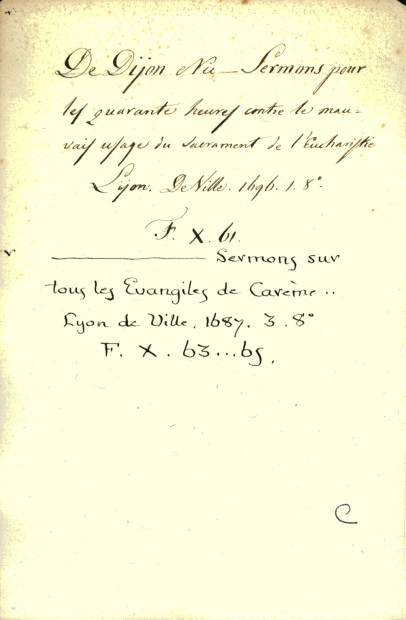 De Dijon Nic — Sermons pour
les quarante heures contre le mau-
vais usage du sacrament de l'Eucharistie
Lijon. De Ville. 1696. 1. 8°.
F. X. 61.
——— Sermons sur
tous les Evangiles de Carème..
Lyon de Ville. 1687. 3. 8°
F. X. 63...65.
C